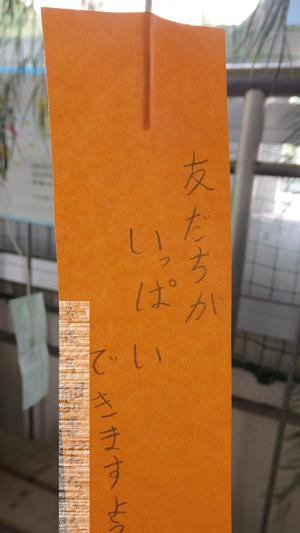 友だちが
いっぱい
できますよう